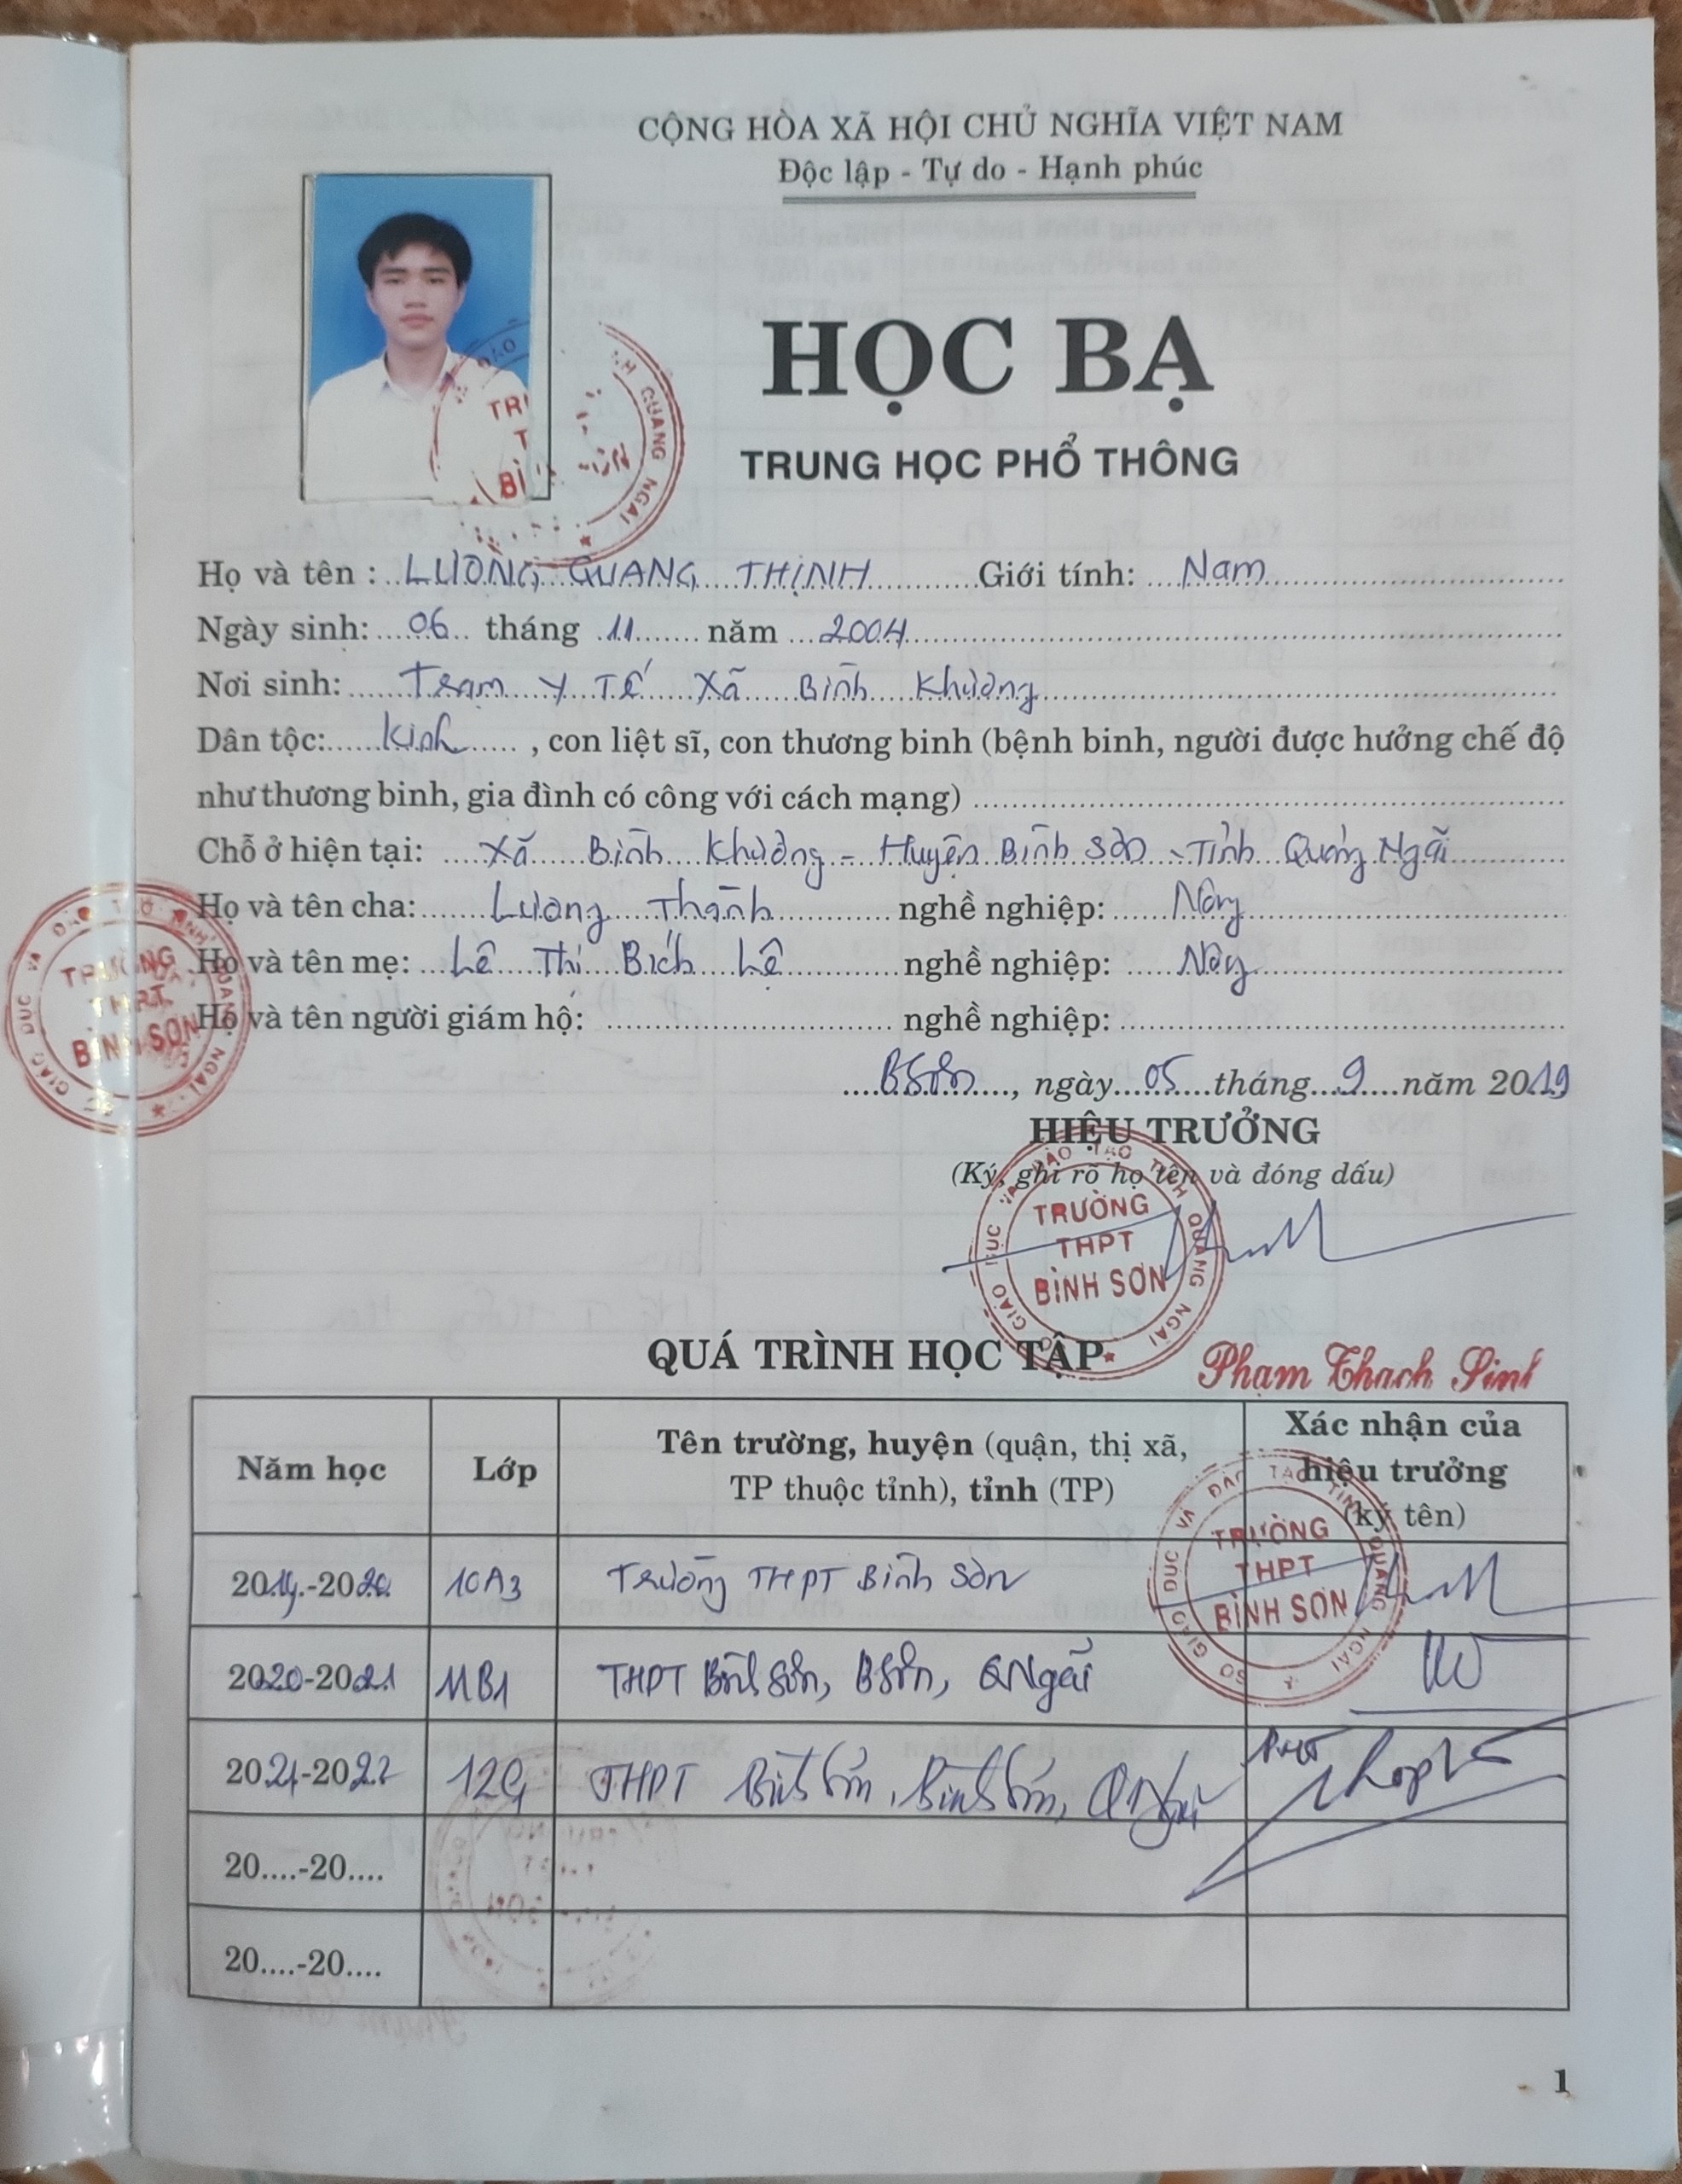 CỘNG HÒA XÃ HỘI CHỦ NGHĨA VIỆT NAM
Độc lập - Tự do - Hạnh phúc
HỌC BẠ
TRUNG HỌC PHỔ THÔNG
Họ và tên : LƯƠNG QUANG THỊNH Giới tính: Nam
Ngày sinh: 06 tháng 11 năm 2004
Nơi sinh: Trạm Y Tế Xã Bình Khương
Dân tộc: Kinh , con liệt sĩ, con thương binh (bệnh binh, người được hưởng chế độ
như thương binh, gia đình có công với cách mạng)
Chỗ ở hiện tại: Xã Bình Khương - Huyện Bình Sơn - Tỉnh Quảng Ngãi
Họ và tên cha: Lương Thành nghề nghiệp: Nông
Họ và tên mẹ: Lê Thị Bích Lệ nghề nghiệp: Nông
Họ và tên người giám hộ: nghề nghiệp:
BSơn, ngày 05 tháng 9 năm 2019
HIỆU TRƯỞNG
(Ký, ghi rõ họ tên và đóng dấu)
TRƯỜNG
THPT
BÌNH SƠN
Phạm Thach Sinh
QUÁ TRÌNH HỌC TẬP
Năm học Lớp Tên trường, huyện (quận, thị xã, TP thuộc tỉnh), tỉnh (TP) Xác nhận của hiệu trưởng (ký tên)
2019-2020 10A3 Trường THPT Bình Sơn
TRƯỜNG
THPT
BÌNH SƠN
2020-2021 11B1 THPT Bình Sơn, BSơn, QNgãi
2021-2022 THPT Bình Sơn, Bình Sơn, QNgãi
20....-20....
20....-20....
1